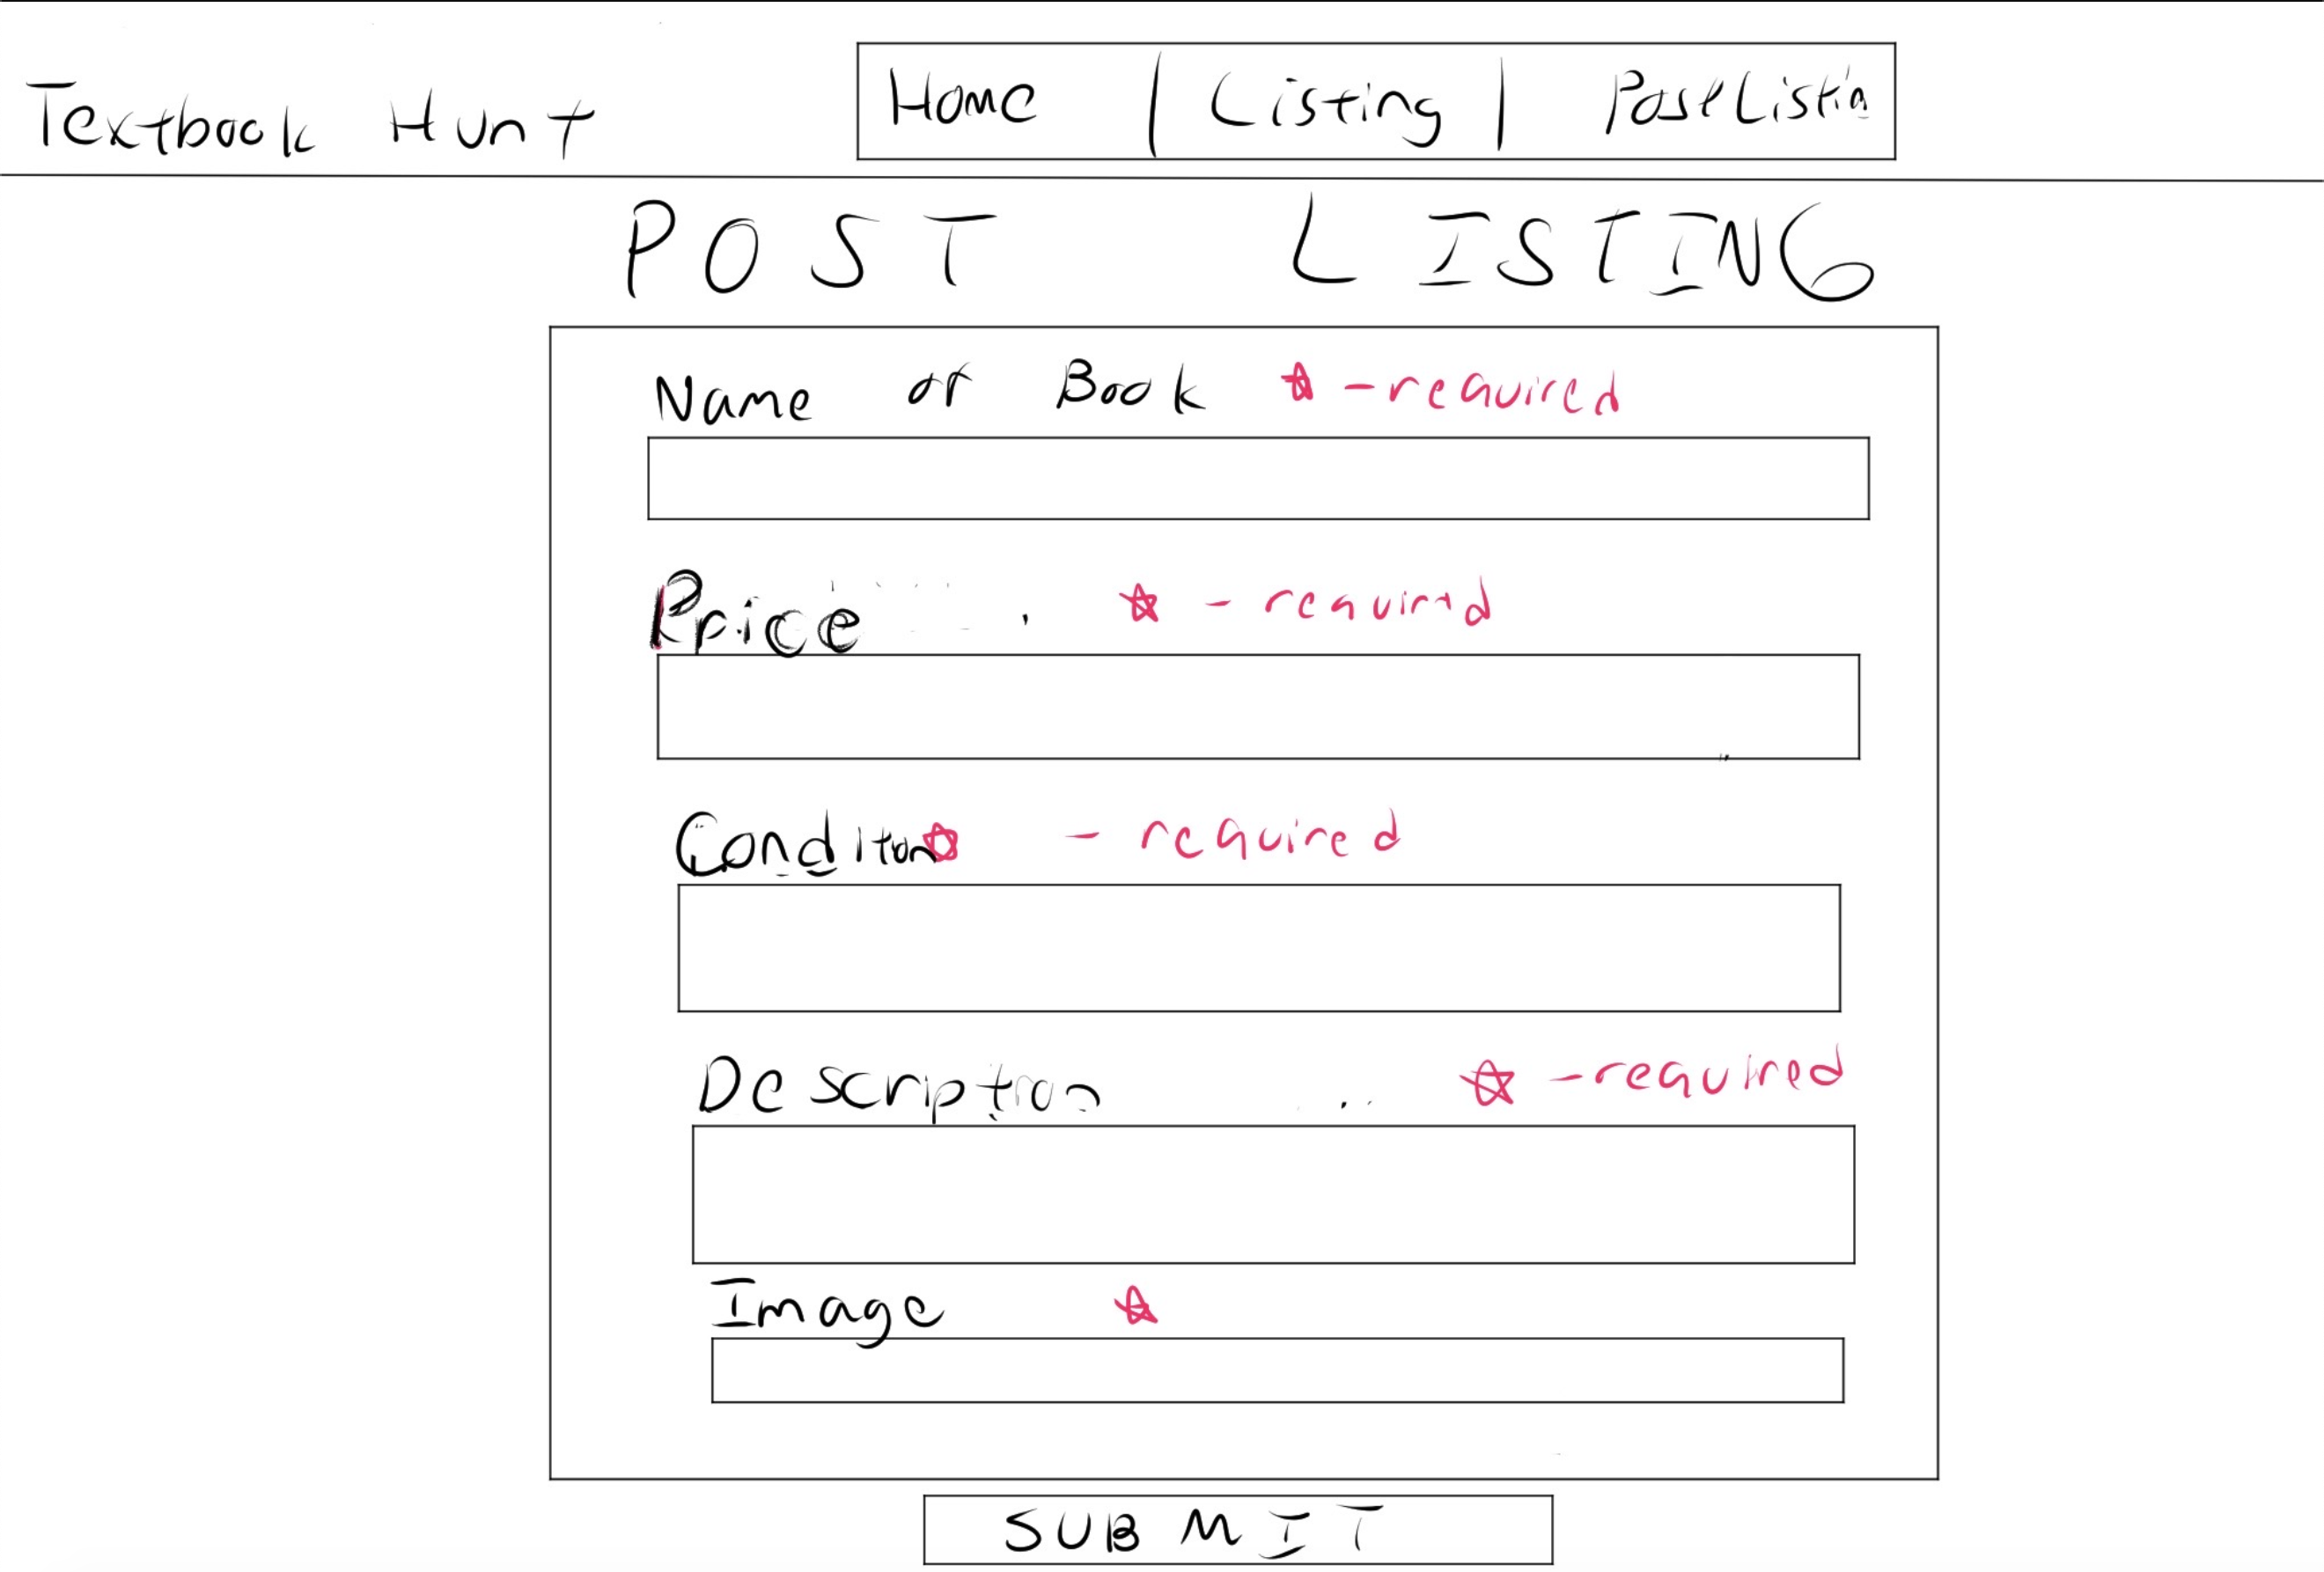 Textbook Hunt
Home | Listing | Post Listin
POST LISTING
Name of Book ☆ - required
Price ☆ - required
Conditon☆ - required
Description ☆ - required
Image ☆
SUBMIT